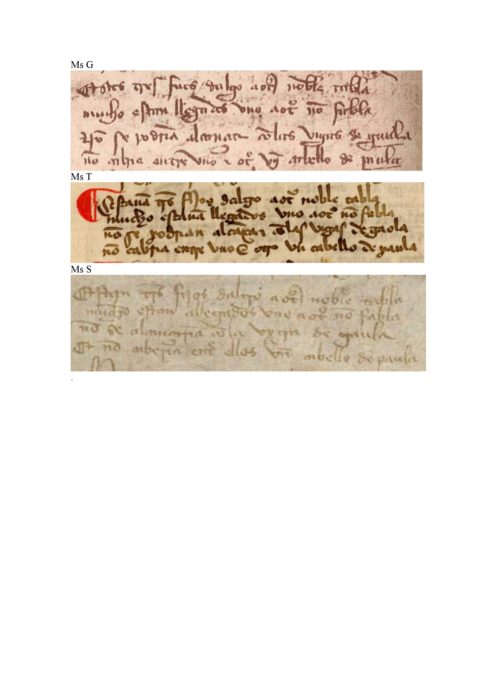 Ms G
Estos tres fijos dalgo a otra noble tabla
mucho estan llegados uno a otro non fabla
non se podria alcançar con las vigas de gaula
non cabrie entre uno e otro un cabello de paula
Ms T
Estauã tres fijos dalgo a otra noble tabla
mucho estauã llegados uno a otro nõ fabla
nõ se podrian alcãçar cõ las vigas de gaola
nõ cabria entre uno E otro un cabello de paula
Ms S
Estan tres fijos dalgo a otra noble tabla
mucho estan allegados vno a otro nõ fabla
nõ se alcançaria cõ la vyga de gaula
E nõ cabria entre ellos vn cabello de paula